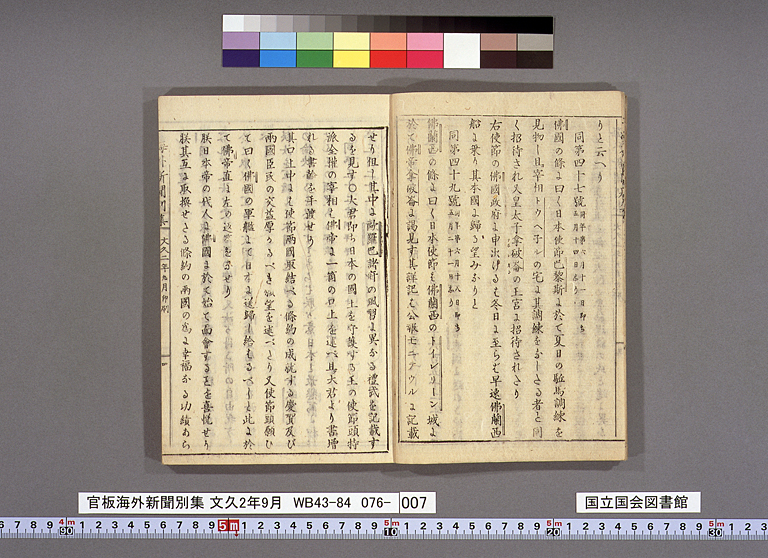 りと云へり
同第四十七號
佛國の條に曰く日本使節巴黎斯に於て夏日の騎馬調練を
見物し且宰相トウヘ子ルの宅に其調練をなしたる者と同
く招待され又皇太子拿破崙の王宮に招待されたり
右使節の佛國政府に申出けるは冬日に至らば早速佛蘭西
船に乗り其本國に歸る望みなりと
同第四十九號
佛蘭西の條に曰く日本使節も佛蘭西のトイレリーン城に
於て帝拿破崙に謁見す其詳記も公報モニテウルに記載
せり但し其中に歐羅巴諸所の風習に異なる禮式を記載す
るを見す〇大君即ち日本の國土を守護する王の使節頭特
派全權の宰相も佛帝に一箇の口上を述へ且大君より書増
れる書翰を手渡せり
其口上中にも使節兩國取結へる條約の成就する慶賀及び
兩國臣民の交益厚かるべき懇望を述べたり又使節頭願ひ
て曰く佛國の軍艦にて日本に送歸し給もるべしと此に於
て佛帝直に左の返答を為せり
朕日本帝の代人に佛國に於て始て面會するを喜悦せり
朕其直に取換せたる條約の兩國の為に幸福なる功績あら
新聞別集 文久二年九月 印刷
官板海外新聞別集 文久2年9月 WB43-84 076- 007
国立国会図書館